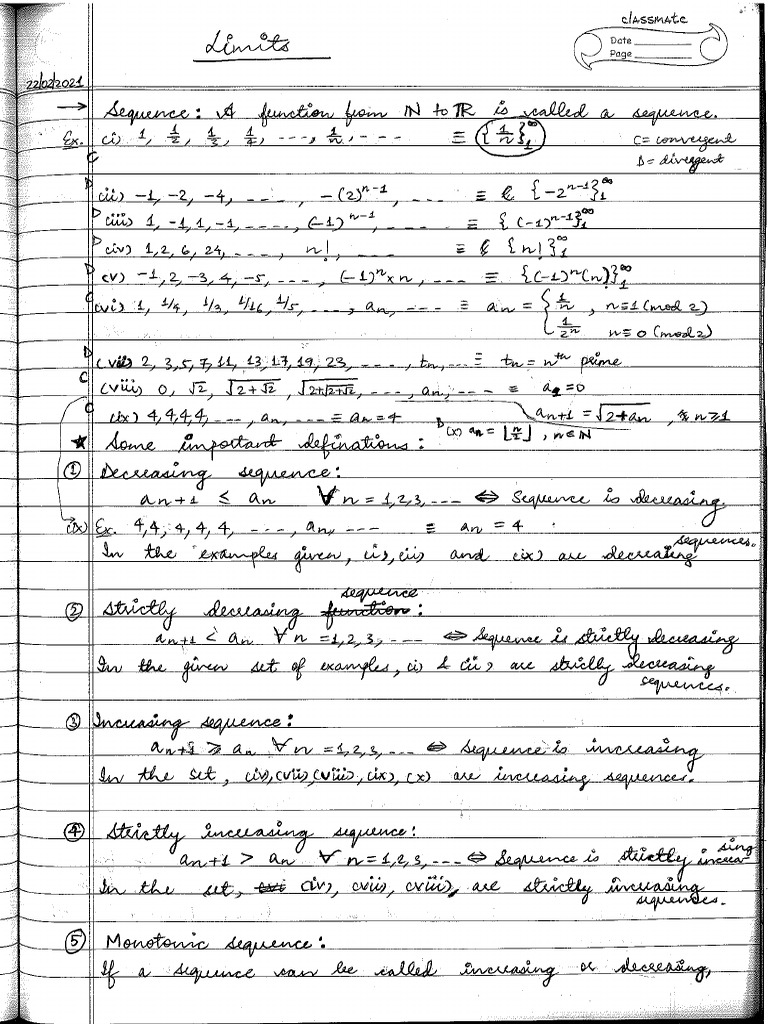 classmate
Date
Page
Limits
22/02/2021
→ Sequence: A function from ℕ to ℝ is called a sequence.
Ex. (i) 1, 1/2, 1/3, 1/4, ----, 1/n, --- ≡ {1/n}₁^∞
C = convergent
D = divergent
C
D (ii) -1, -2, -4, ----, -(2)^{n-1}, ---- ≡ {-2^{n-1}}₁^∞
D (iii) 1, -1, 1, -1, ----, (-1)^{n-1}, ---- ≡ {(-1)^{n-1}}₁^∞
D (iv) 1, 2, 6, 24, ----, n!, ---- ≡ {n!}₁^∞
D (v) -1, 2, -3, 4, -5, ----, (-1)^n × n, ---- ≡ {(-1)^n (n)}₁^∞
C (vi) 1, 1/4, 1/3, 1/16, 1/5, ----, aₙ, ---- ≡ aₙ = { 1/n , n≡1 (mod 2)
1/2ⁿ n≡0 (mod 2)
D (vii) 2, 3, 5, 7, 11, 13, 17, 19, 23, ----, tₙ, -- ≡ tₙ = nth prime
C (viii) 0, √2, √(2+√2), √(2+√(2+√2)), ---, aₙ, ---- ≡ a₁ = 0
aₙ₊₁ = √(2+aₙ) , n≥1
C (ix) 4, 4, 4, 4, ---, aₙ, --- ≡ aₙ = 4
D (x) aₙ = ⌊n/2⌋ , n∈ℕ
★ Some important definations:
① Decreasing sequence:
aₙ₊₁ ≤ aₙ ∀ n = 1,2,3, ---- ⇔ Sequence is decreasing
(ix) Ex. 4, 4, 4, 4, 4, ----, aₙ, --- ≡ aₙ = 4
In the examples given, (i), (ii) and (ix) are decreasing
sequences.
② Strictly decreasing function sequence:
aₙ₊₁ < aₙ ∀ n = 1,2,3, ---- ⇔ Sequence is strictly decreasing
In the given set of examples, (i) & (ii) are strictly decreasing
sequences.
③ Increasing sequence:
aₙ₊₁ ≥ aₙ ∀ n = 1,2,3, --- ⇔ Sequence is increasing
In the set, (iv), (vii), (viii), (ix), (x) are increasing sequences.
④ Strictly increasing sequence:
aₙ₊₁ > aₙ ∀ n = 1,2,3, ---- ⇔ Sequence is strictly increasing
In the set, (iv), (vii), (viii), are strictly increasing
sequences.
⑤ Monotonic sequence:
If a sequence can be called increasing or decreasing,